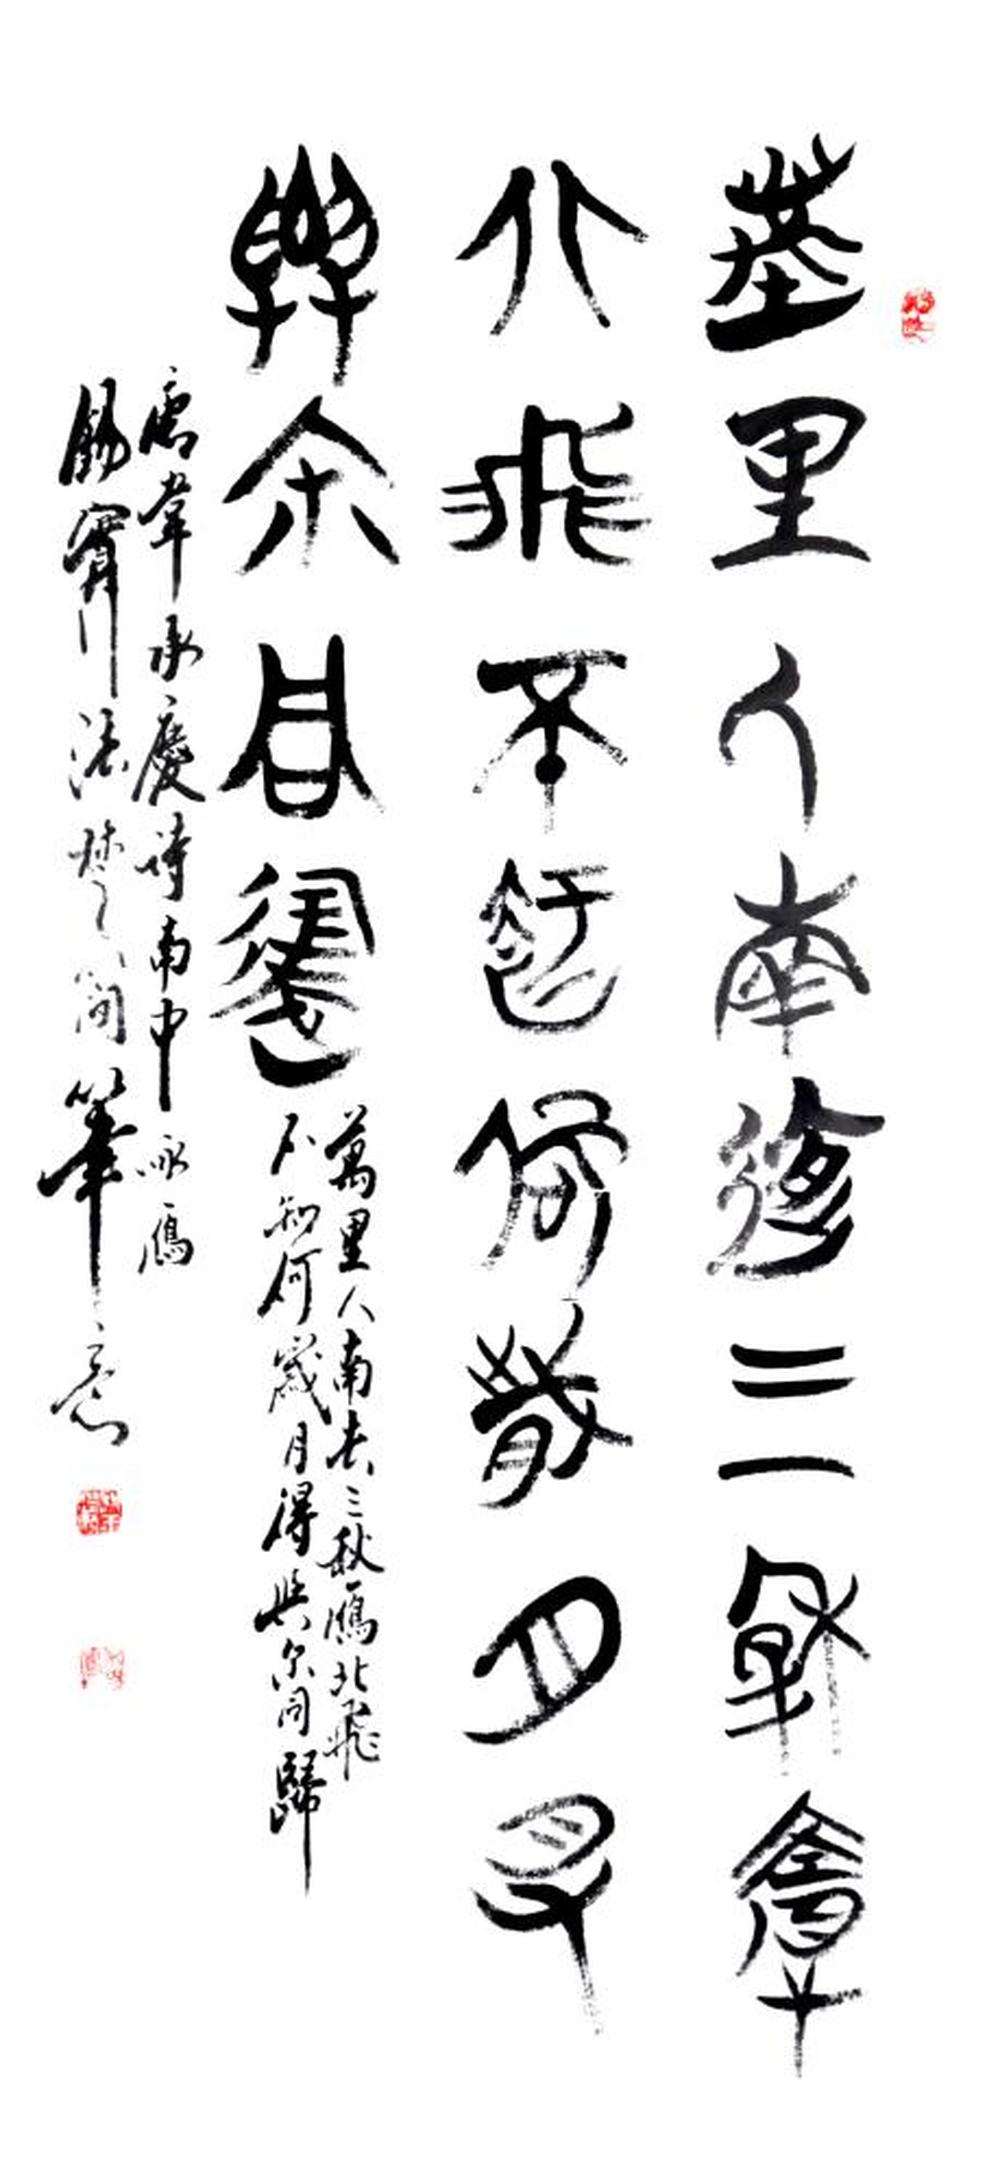 萬里人南去三秋雁
北飛不知何歲月得
與尔同歸
萬里人南去三秋雁北飛
不知何歲月得與尔同歸
唐韋承慶詩南中咏雁
錫法楚簡筆意